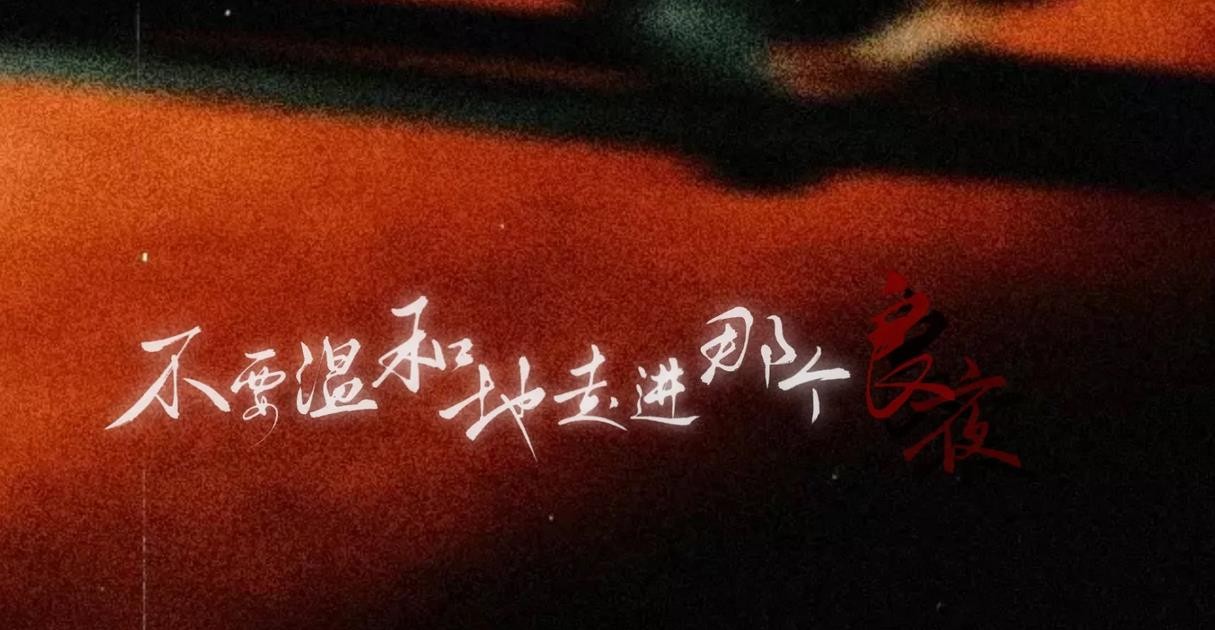 不要温和地走进那个良夜